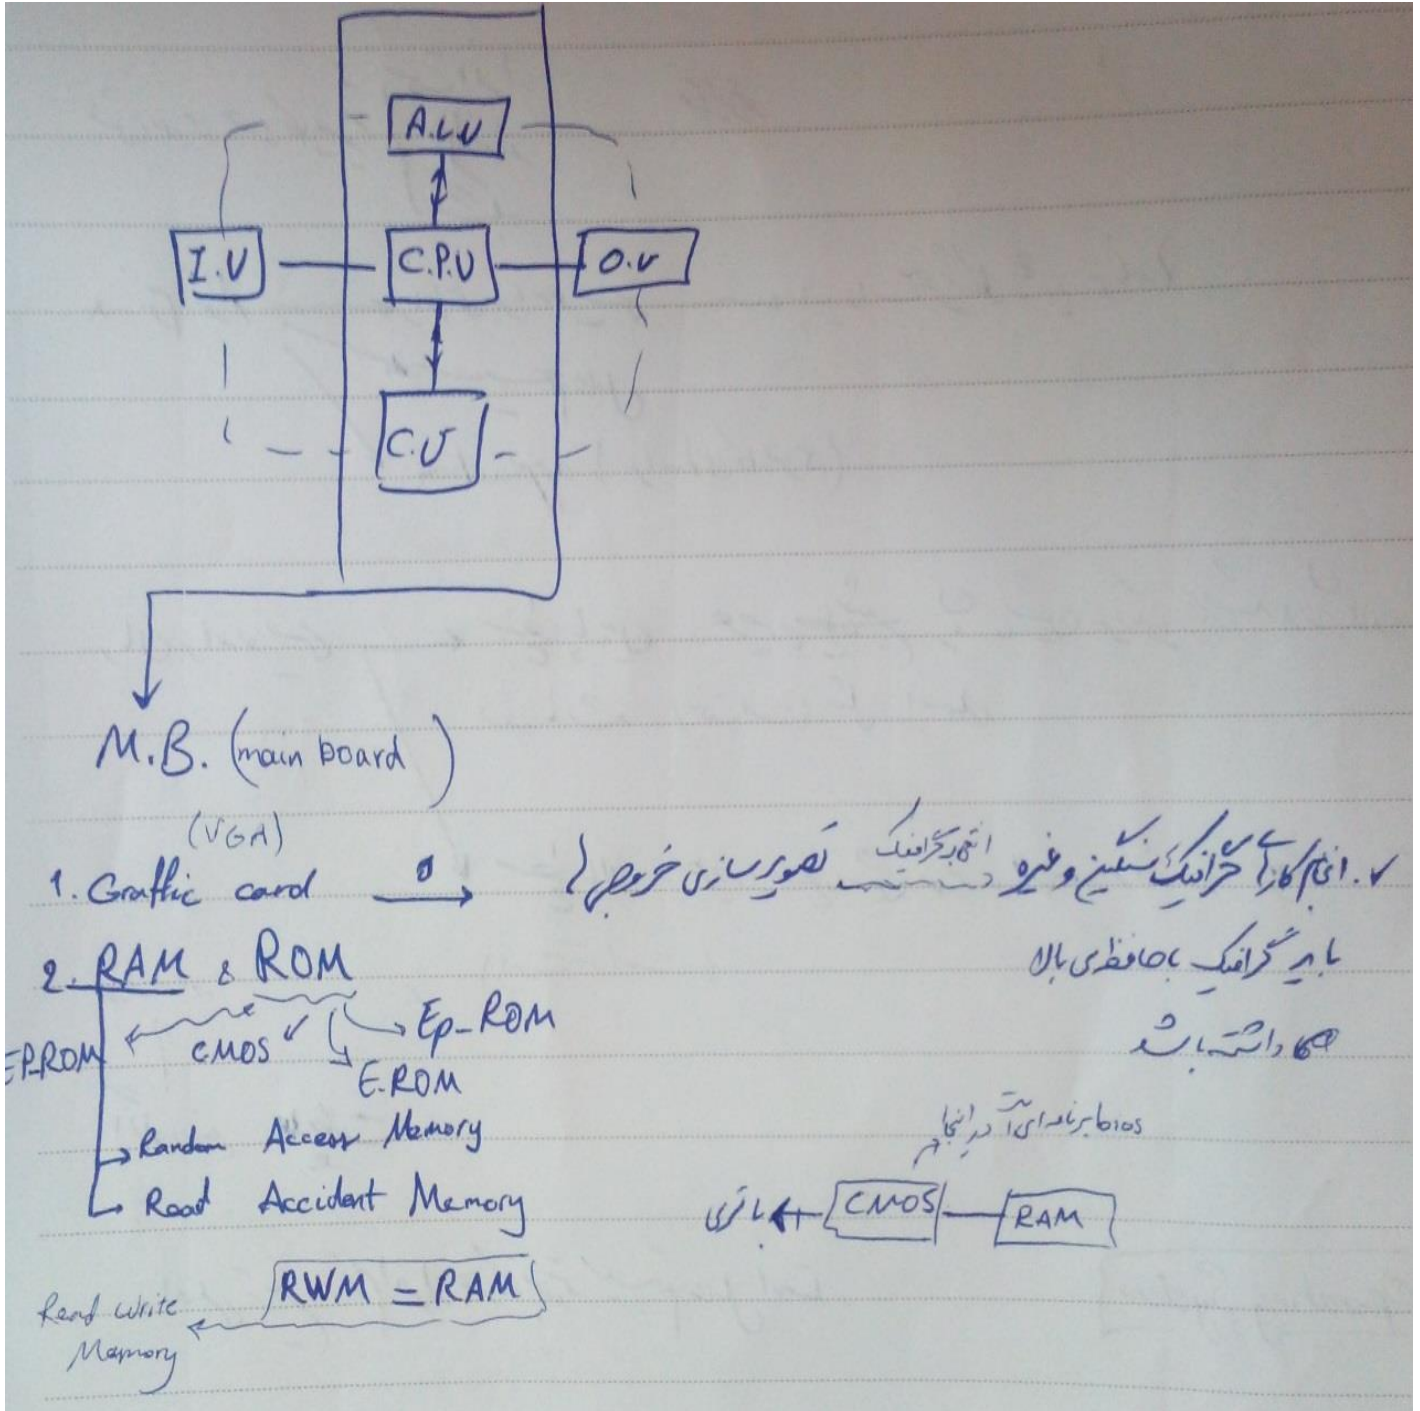 A.L.U
I.U C.P.U O.U
C.U
M.B. (main board)
(VGA)
1. Graffic card → تصویرسازی خروجی‌ها
✓. انجام کارهای گرافیک سنگین و غیره
باید گرافیک با حافظه‌ی بالا
داشته باشد
2. RAM & ROM
EP.ROM CMOS E.ROM Ep-ROM
Random Access Memory
Read Accident Memory
bios برنامه‌ای است در اینجا
باتری ← CMOS — RAM
RWM = RAM
Read write
Memory